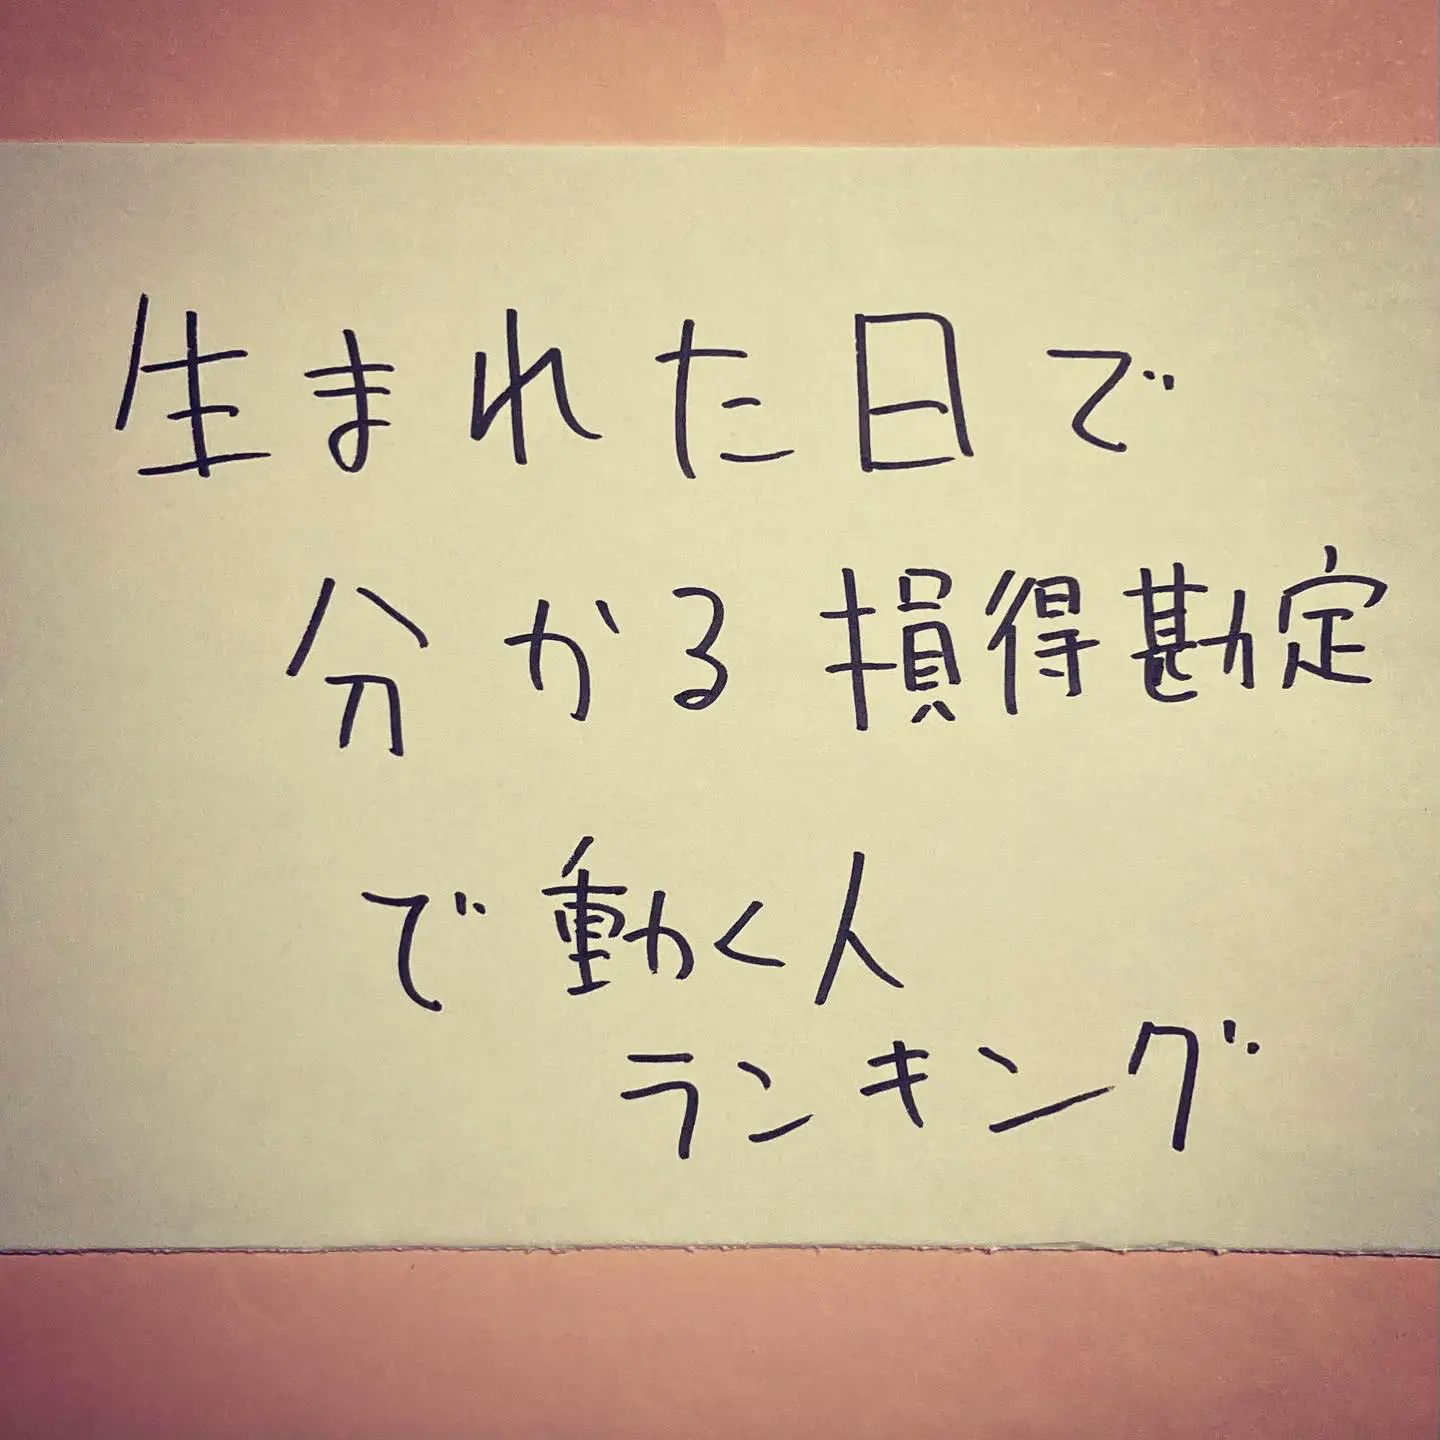 生まれた日で
分かる損得勘定
で動く人
ランキング